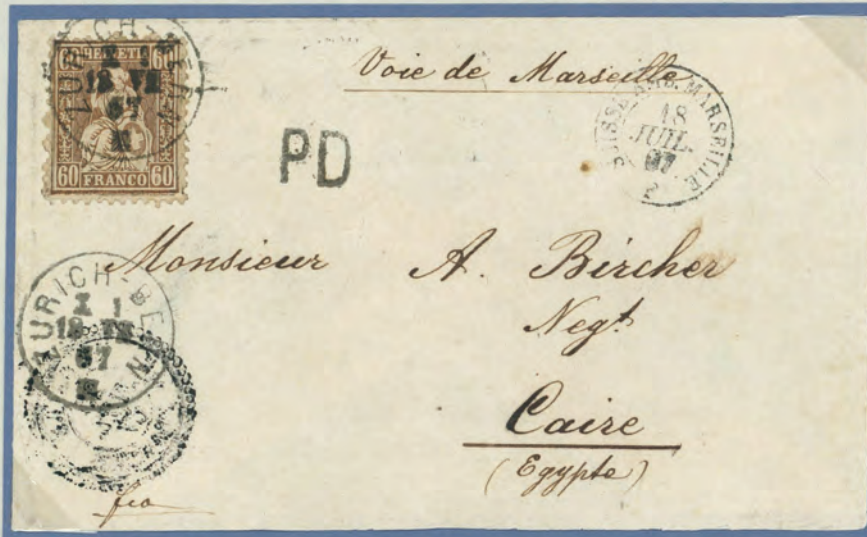 60 HELVETIA 60
60 FRANCO 60
ZURICH
I 1
18 VII
67
Voie de Marseille
PD
SUISSE AMB. MARSEILLE
18
JUIL.
67
2
Monsieur A. Bircher
Negt
Caire
(Egypte)
ZURICH-BERN
I 1
18 VII
67
fco